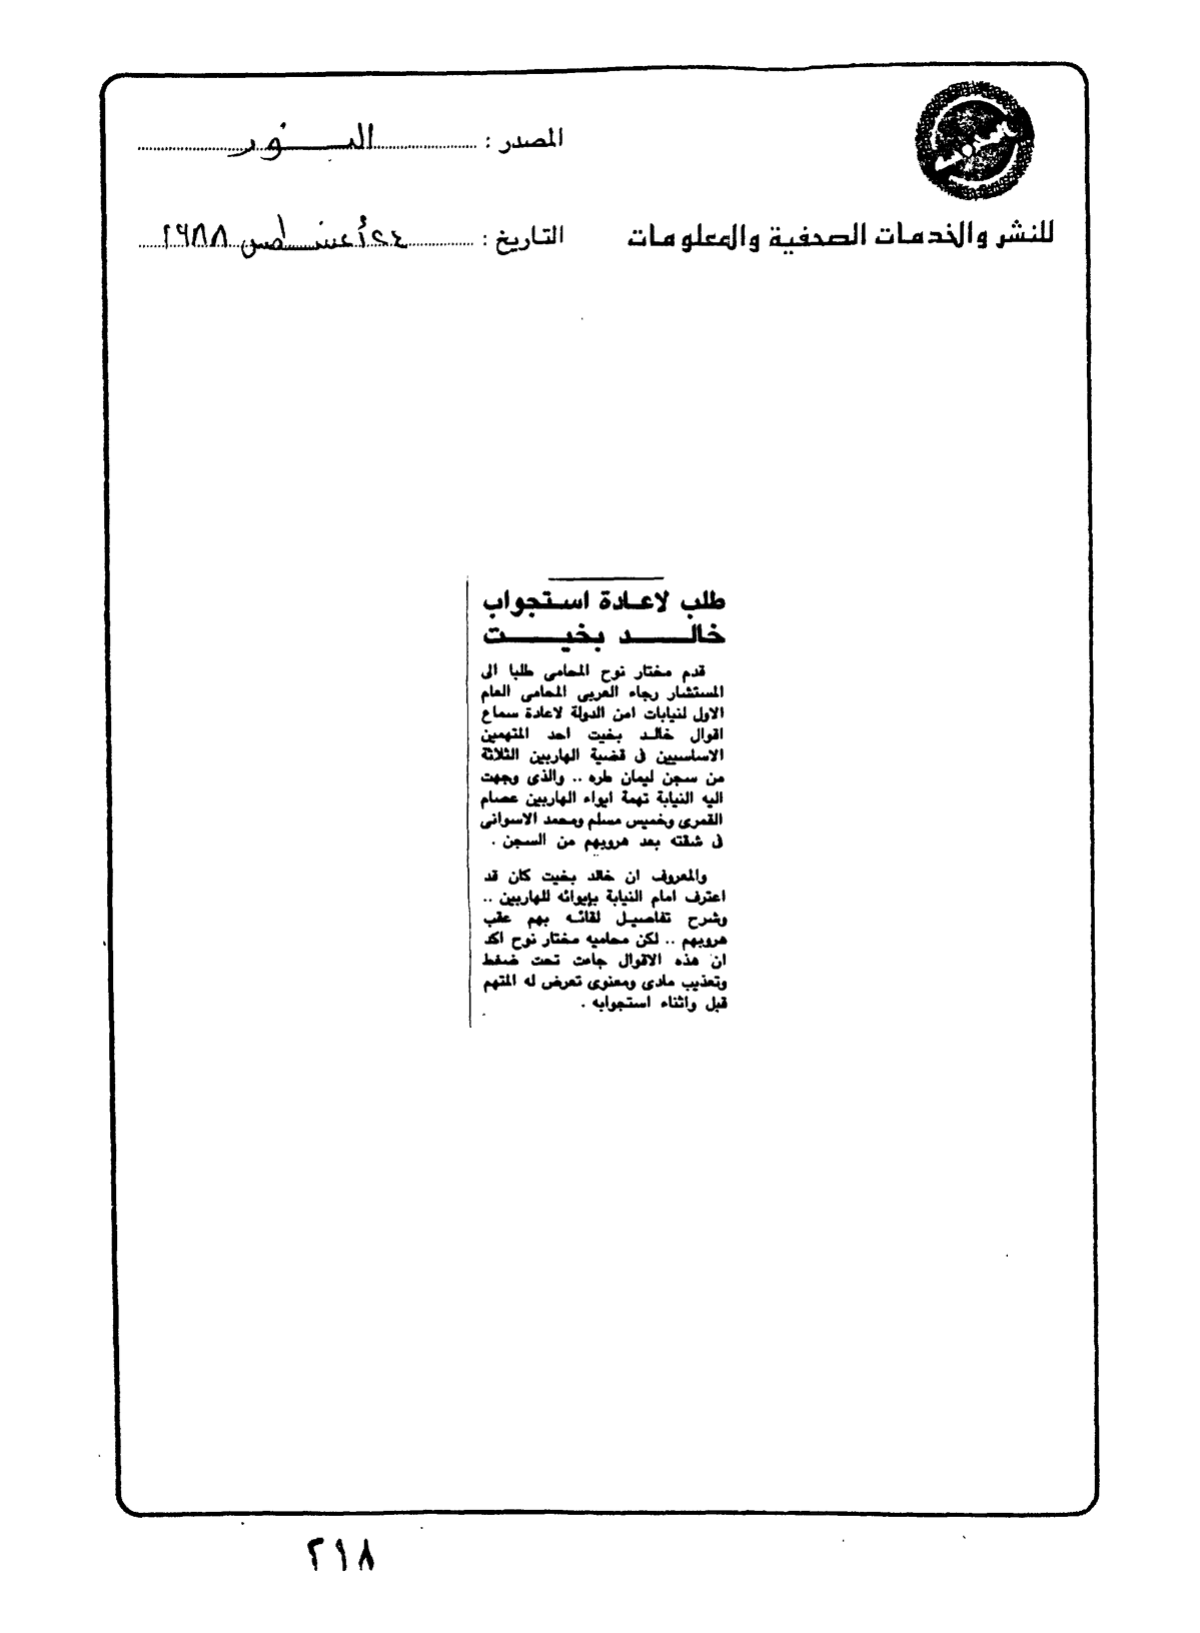 المصدر : النور
للنشر والخدمات الصحفية والمعلومات
التاريخ : ٢٤ أغسطس ١٩٨٨
طلب لاعادة استجواب
خالد بخيت
قدم مختار نوح المحامى طلبا الى
المستشار رجاء العربى المحامى العام
الاول لنيابات امن الدولة لاعادة سماع
اقوال خالد بخيت احد المتهمين
الاساسيين فى قضية الهاربين الثلاثة
من سجن ليمان طره .. والذى وجهت
اليه النيابة تهمة ايواء الهاربين عصام
القمرى وخميس مسلم ومحمد الاسوانى
فى شقته بعد هروبهم من السجن .
والمعروف ان خالد بخيت كان قد
اعترف امام النيابة بإيوائه للهاربين ..
وشرح تفاصيل لقائه بهم عقب
هروبهم .. لكن محاميه مختار نوح اكد
ان هذه الاقوال جاءت تحت ضغط
وتعذيب مادى ومعنوى تعرض له المتهم
قبل واثناء استجوابه .
٢١٨